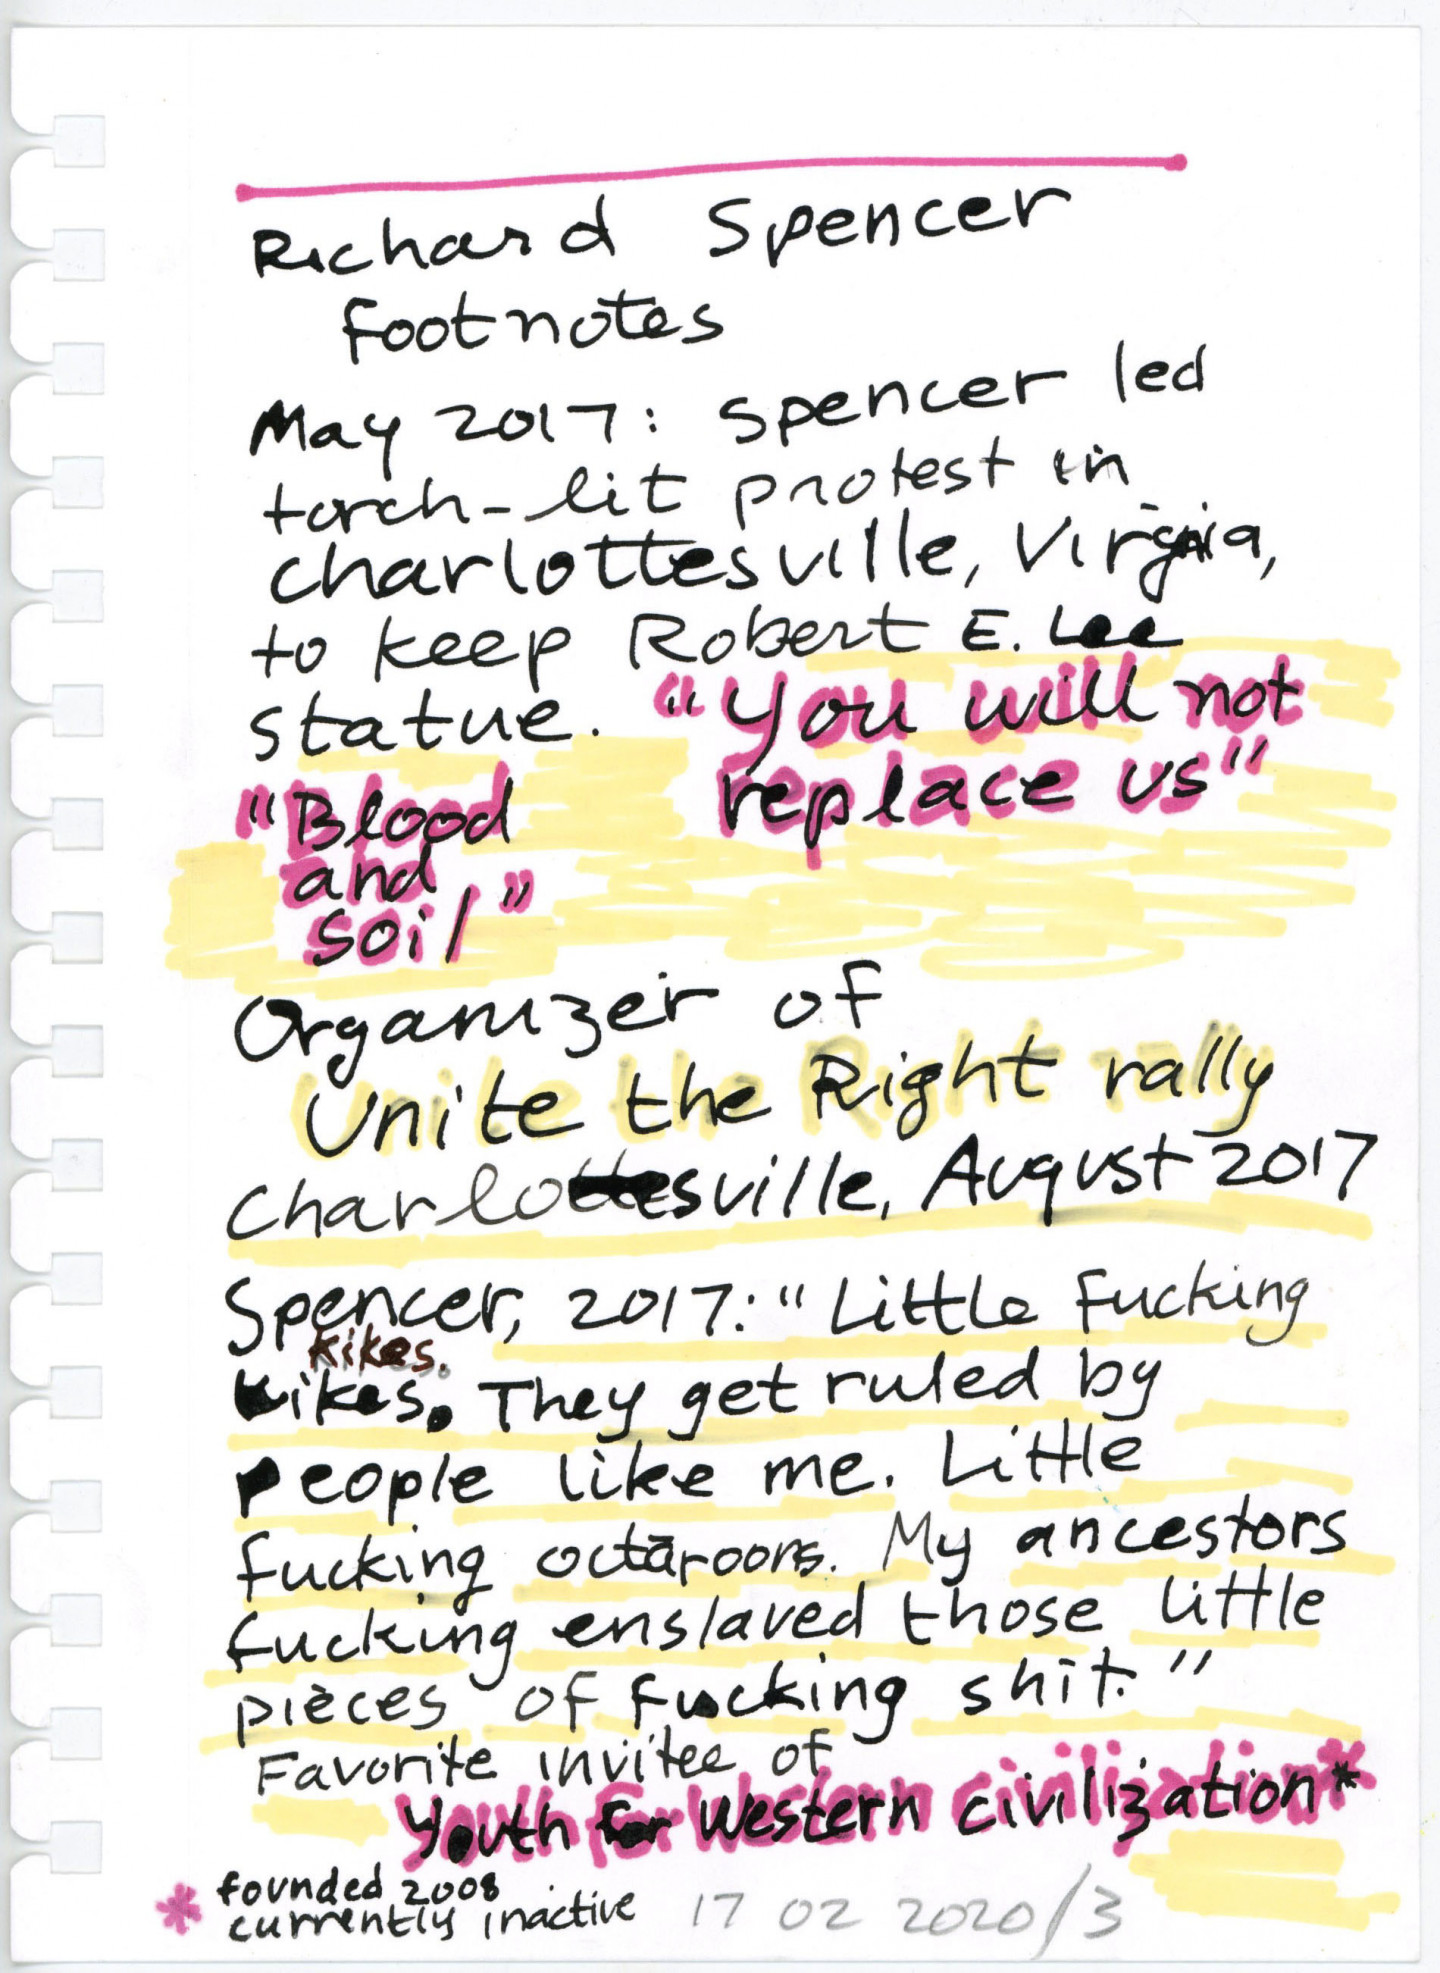 Richard Spencer
footnotes
May 2017: Spencer led
torch-lit protest in
Charlottesville, Virginia,
to keep Robert E. Lee
statue. "You will not
replace us"
"Blood
and
soil"
Organizer of
Unite the Right rally
Charlottesville, August 2017
Spencer, 2017: "Little Fucking
kikes.
Kikes. They get ruled by
people like me. Little
fucking octaroons. My ancestors
fucking enslaved those little
pieces of fucking shit."
Favorite invitee of
Youth for Western Civilization*
* founded 2008
currently inactive
17 02 2020/3